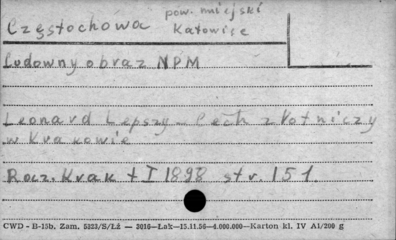 pow. miejski
Częstochowa Katowice
Cudowny obraz NPM
Leonard Lepszy - Cech złotniczy
w Krakowie
Rocz. Krak t I 1898 str. 151.
CWD - B-15b. Zam. 5323/S/Lż — 2016—Łak—15.11.56—4.000.000—Karton kl. IV A1/200 g